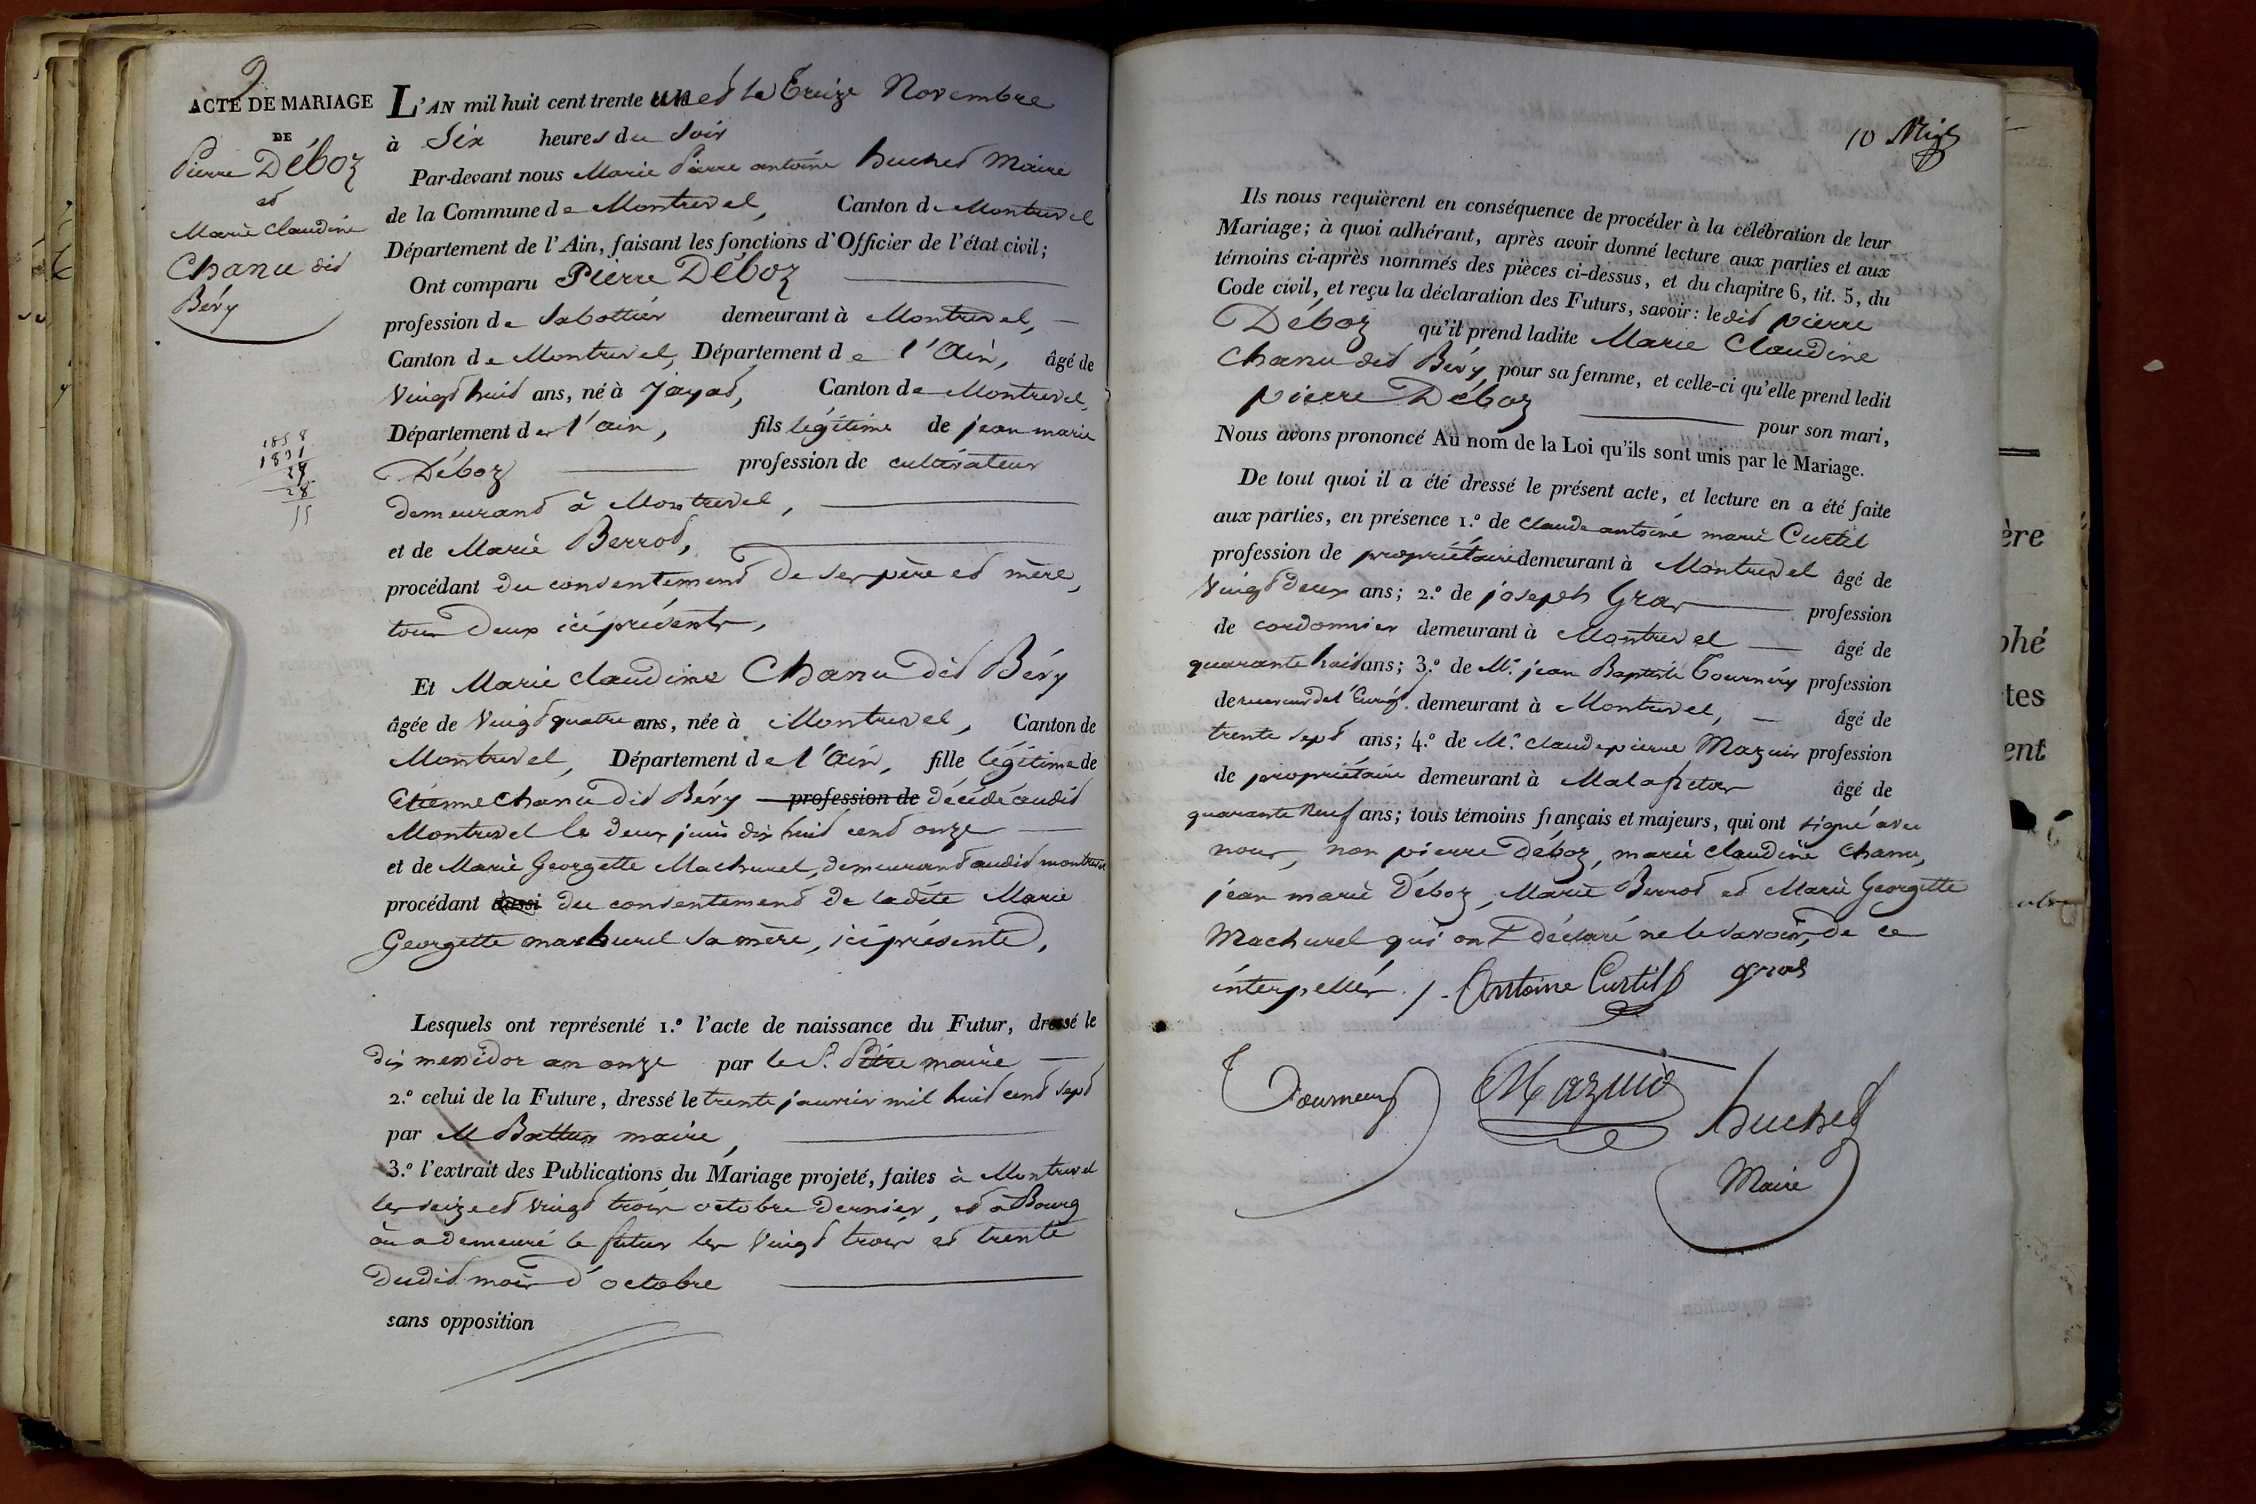 9
ACTE DE MARIAGE
DE
Pierre Déboz
et
Marie Claudine
Chanu dit
Béry
1858
1831
27
28
55
L'AN mil huit cent trente un et le treize Novembre
à Six heures du Soir
Par-devant nous Marie Pierre antoine huchet Maire
de la Commune de Montrevel, Canton de Montrevel
Département de l'Ain, faisant les fonctions d'Officier de l'état civil;
Ont comparu Pierre Déboz
profession de Sabottier demeurant à Montrevel,
Canton de Montrevel, Département de l'Ain, âgé de
Vingt huit ans, né à Jayat, Canton de Montrevel,
Département de l'ain, fils légitime de jean marie
Déboz profession de cultivateur
demeurant à Montrevel,
et de Marie Berrot,
procédant du consentement de ses père et mère,
tous deux ici présents,
Et Marie claudine Chanu dit Béry
âgée de Vingt quatre ans, née à Montrevel, Canton de
Montrevel, Département de l'Ain, fille légitime de
Etienne Chanu dit Béry profession de décédé audit
Montrevel le deux juin dix huit cent onze
et de Marie Georgette Machurel, demeurant audit montrevel
procédant aussi du consentement de ladite Marie
Georgette machurel sa mère, ici présente,
Lesquels ont représenté 1.º l'acte de naissance du Futur, dressé le
dix messidor an onze par le S. maire
2.º celui de la Future, dressé le trente janvier mil huit cent sept
par M maire,
3.º l'extrait des Publications du Mariage projeté, faites à Montrevel
les seize et vingt trois octobre dernier, et à Bourg
où a demeuré le futur les vingt trois et trente
dudit mois d'octobre
sans opposition
10
Ils nous requièrent en conséquence de procéder à la célébration de leur
Mariage; à quoi adhérant, après avoir donné lecture aux parties et aux
témoins ci-après nommés des pièces ci-dessus, et du chapitre 6, tit. 5, du
Code civil, et reçu la déclaration des Futurs, savoir: ledit pierre
Déboz qu'il prend ladite Marie Claudine
Chanu dit Béry, pour sa femme, et celle-ci qu'elle prend ledit
pierre Déboz pour son mari,
Nous avons prononcé Au nom de la Loi qu'ils sont unis par le Mariage.
De tout quoi il a été dressé le présent acte, et lecture en a été faite
aux parties, en présence 1.º de claude antoine marie Curtil
profession de propriétaire demeurant à Montrevel âgé de
Vingt deux ans; 2.º de joseph Gros profession
de cordonnier demeurant à Montrevel âgé de
quarante huit ans; 3.º de Mr. jean Baptiste Tournéry profession
de receveur de l'Enregt. demeurant à Montrevel, âgé de
trente sept ans; 4.º de Mr. claude pierre Mazuir profession
de propriétaire demeurant à Malafretaz âgé de
quarante Neuf ans; tous témoins français et majeurs, qui ont signé avec
nous, non pierre Déboz, marie claudine Chanu,
jean marie Déboz, Marie Berrot et Marie Georgette
Machurel qui ont déclaré ne le savoir, de ce
interpellés ./. Antoine Curtil gros
Mazuir huchet
Maire